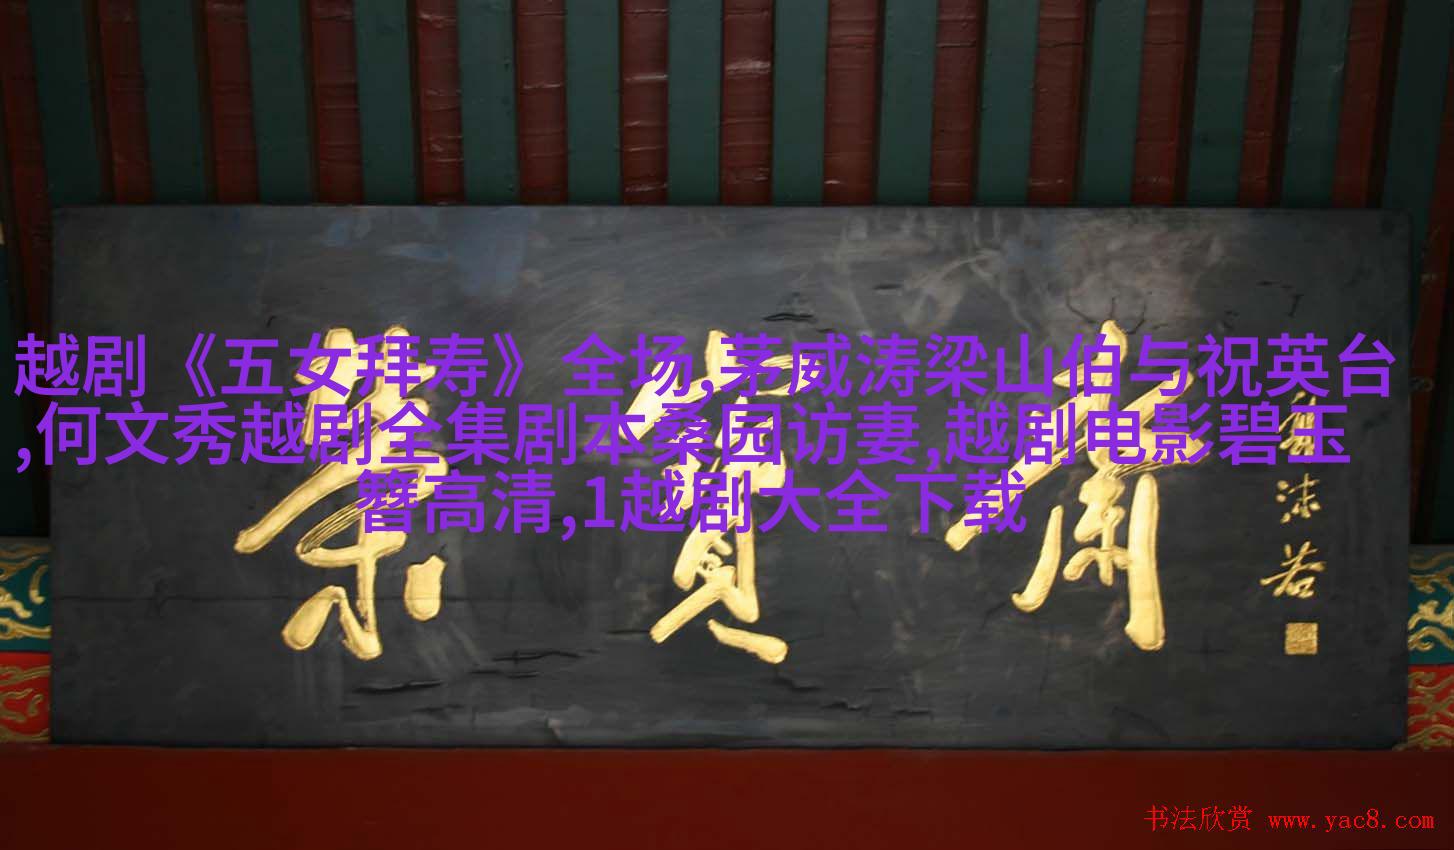 越剧《五女拜寿》全场,茅威涛梁山伯与祝英台
,何文秀越剧全集剧本桑园访妻,越剧电影碧玉
簪高清,1越剧大全下载
荣宝斋
郭沫若
书法欣赏 www.yac8.com